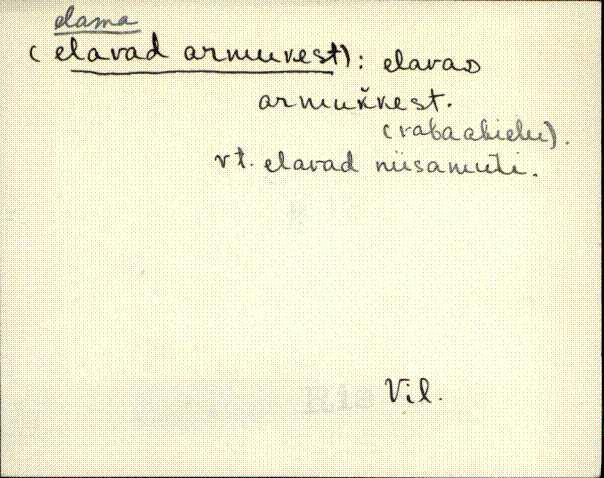 elama
(elavad armuvest): elavad
armuk̆vest.
(vabaabielu).
vt. elavad niisamuti.
Vil.